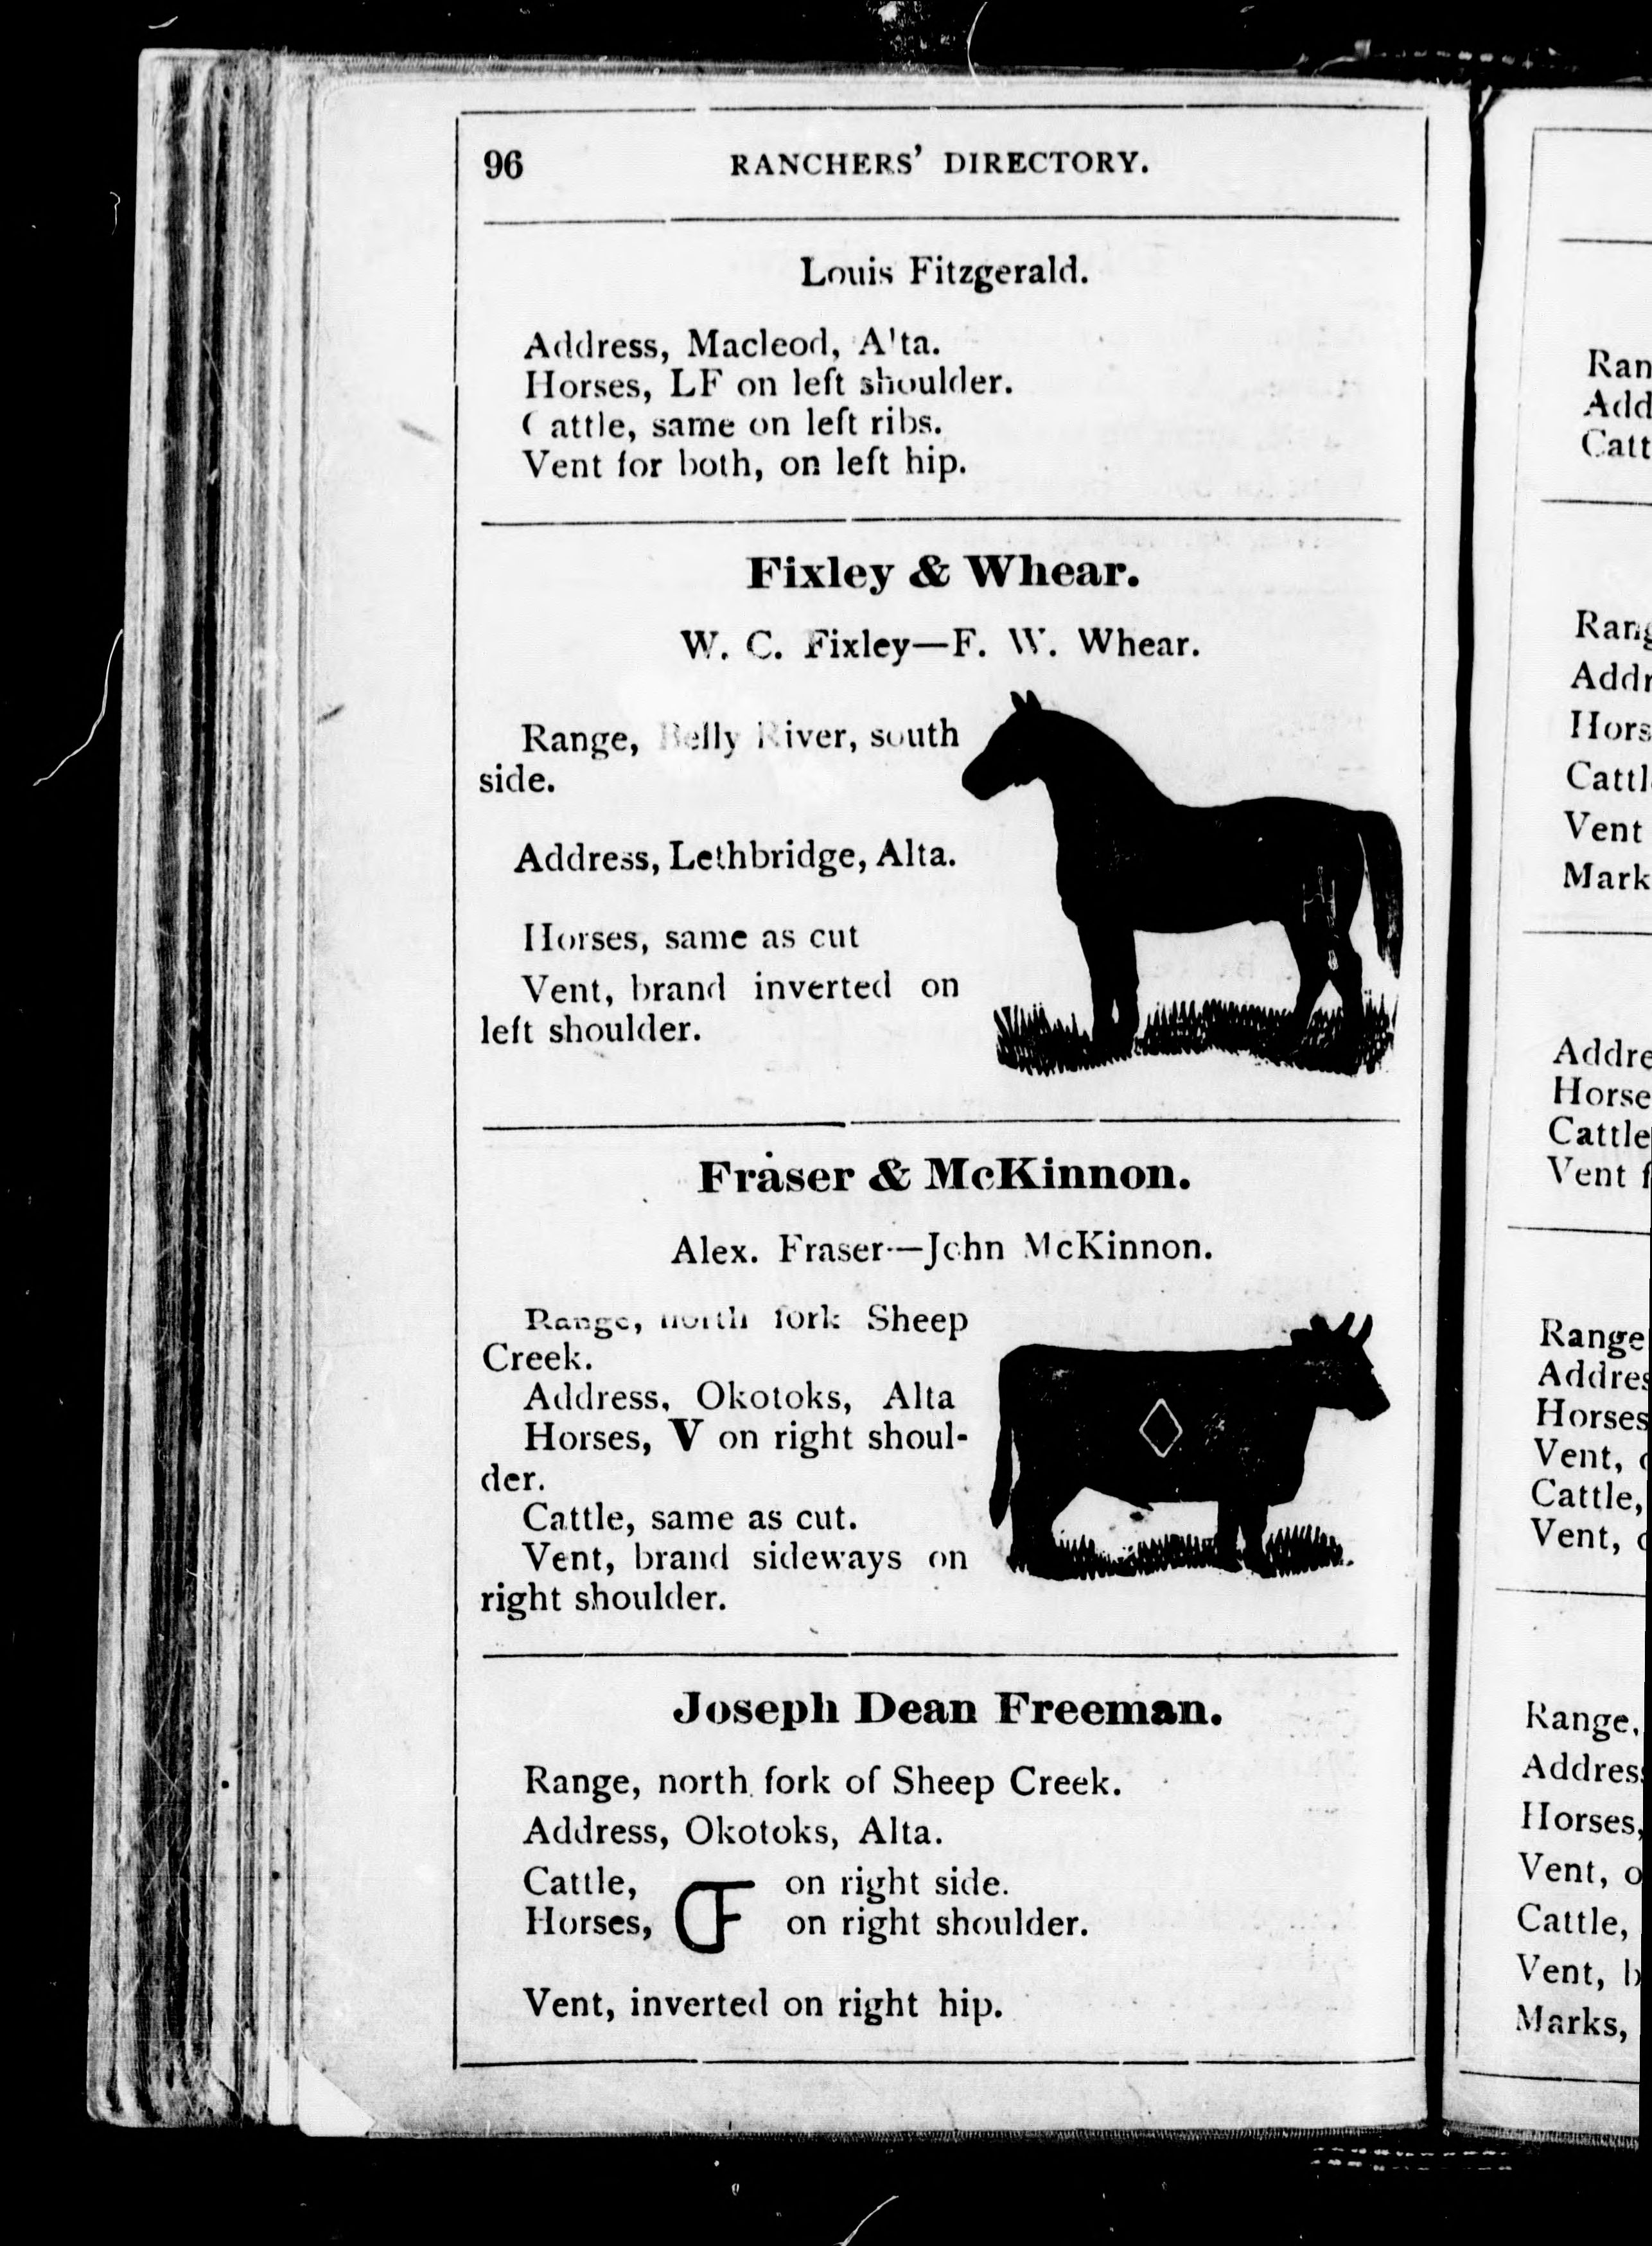 96 RANCHERS' DIRECTORY.
Louis Fitzgerald.
Address, Macleod, Alta.
Horses, LF on left shoulder.
Cattle, same on left ribs.
Vent for both, on left hip.
Fixley & Whear.
W. C. Fixley—F. W. Whear.
Range, Belly River, south
side.
Address, Lethbridge, Alta.
Horses, same as cut
Vent, brand inverted on
left shoulder.
Fraser & McKinnon.
Alex. Fraser—John McKinnon.
Range, north fork Sheep
Creek.
Address, Okotoks, Alta
Horses, V on right shoul-
der.
Cattle, same as cut.
Vent, brand sideways on
right shoulder.
Joseph Dean Freeman.
Range, north fork of Sheep Creek.
Address, Okotoks, Alta.
Cattle, on right side.
Horses, on right shoulder.
Vent, inverted on right hip.
Ran
Add
Catt
Rang
Addr
Hors
Cattl
Vent
Mark
Addre
Horse
Cattle
Vent f
Range
Addres
Horses
Vent,
Cattle,
Vent,
Range,
Address
Horses,
Vent, o
Cattle,
Vent, b
Marks,